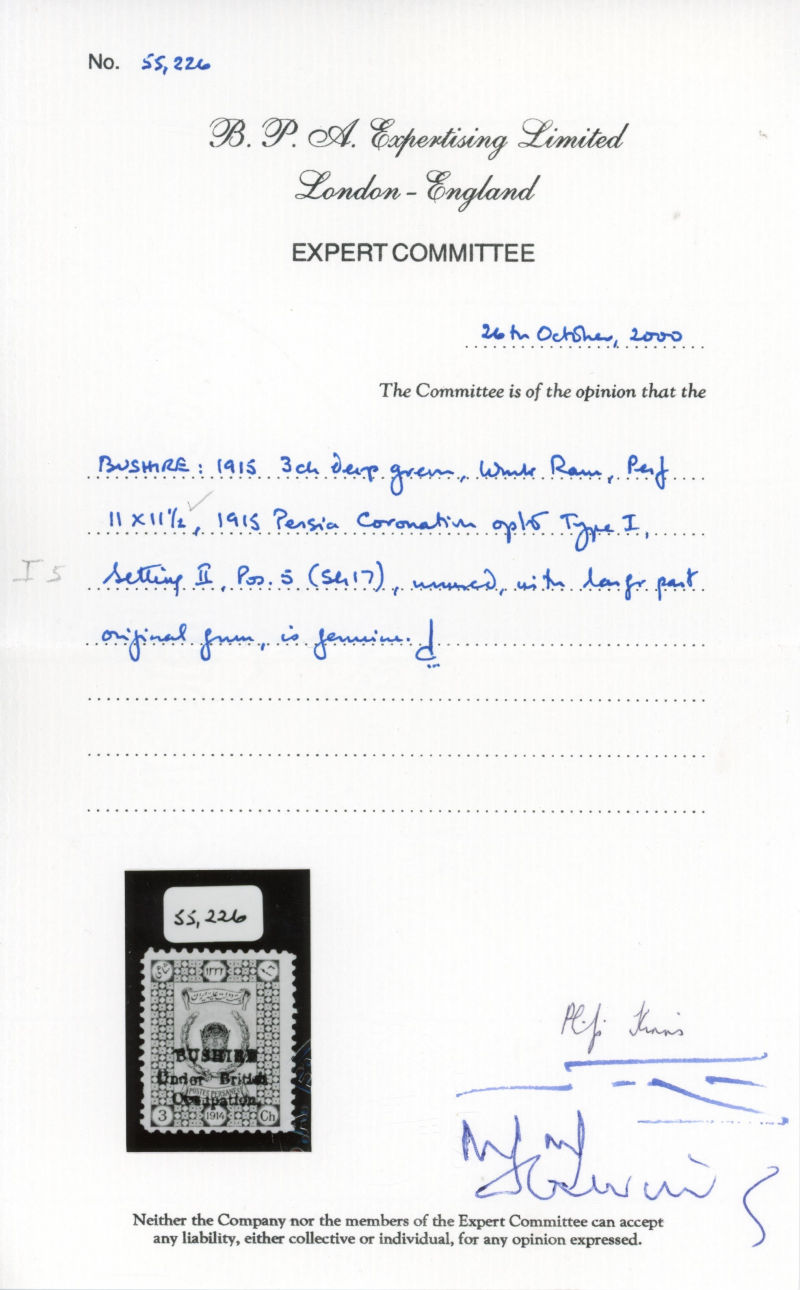 No. 55,226
B. P. A. Expertising Limited
London - England
EXPERT COMMITTEE
26th October, 2000
The Committee is of the opinion that the
BUSHIRE: 1915 3ch deep green, Wmk Ram, Perf
11 x 11½, 1915 Persia Coronation optd Type I,
I 5
Setting II, Pos. 5 (SG 17), unused, with large part
original gum, is genuine.
55,226
۱۳۳۲
BUSHIRE
Under British
Occupation.
POSTES PERSANES
3 1914 Ch
Neither the Company nor the members of the Expert Committee can accept
any liability, either collective or individual, for any opinion expressed.